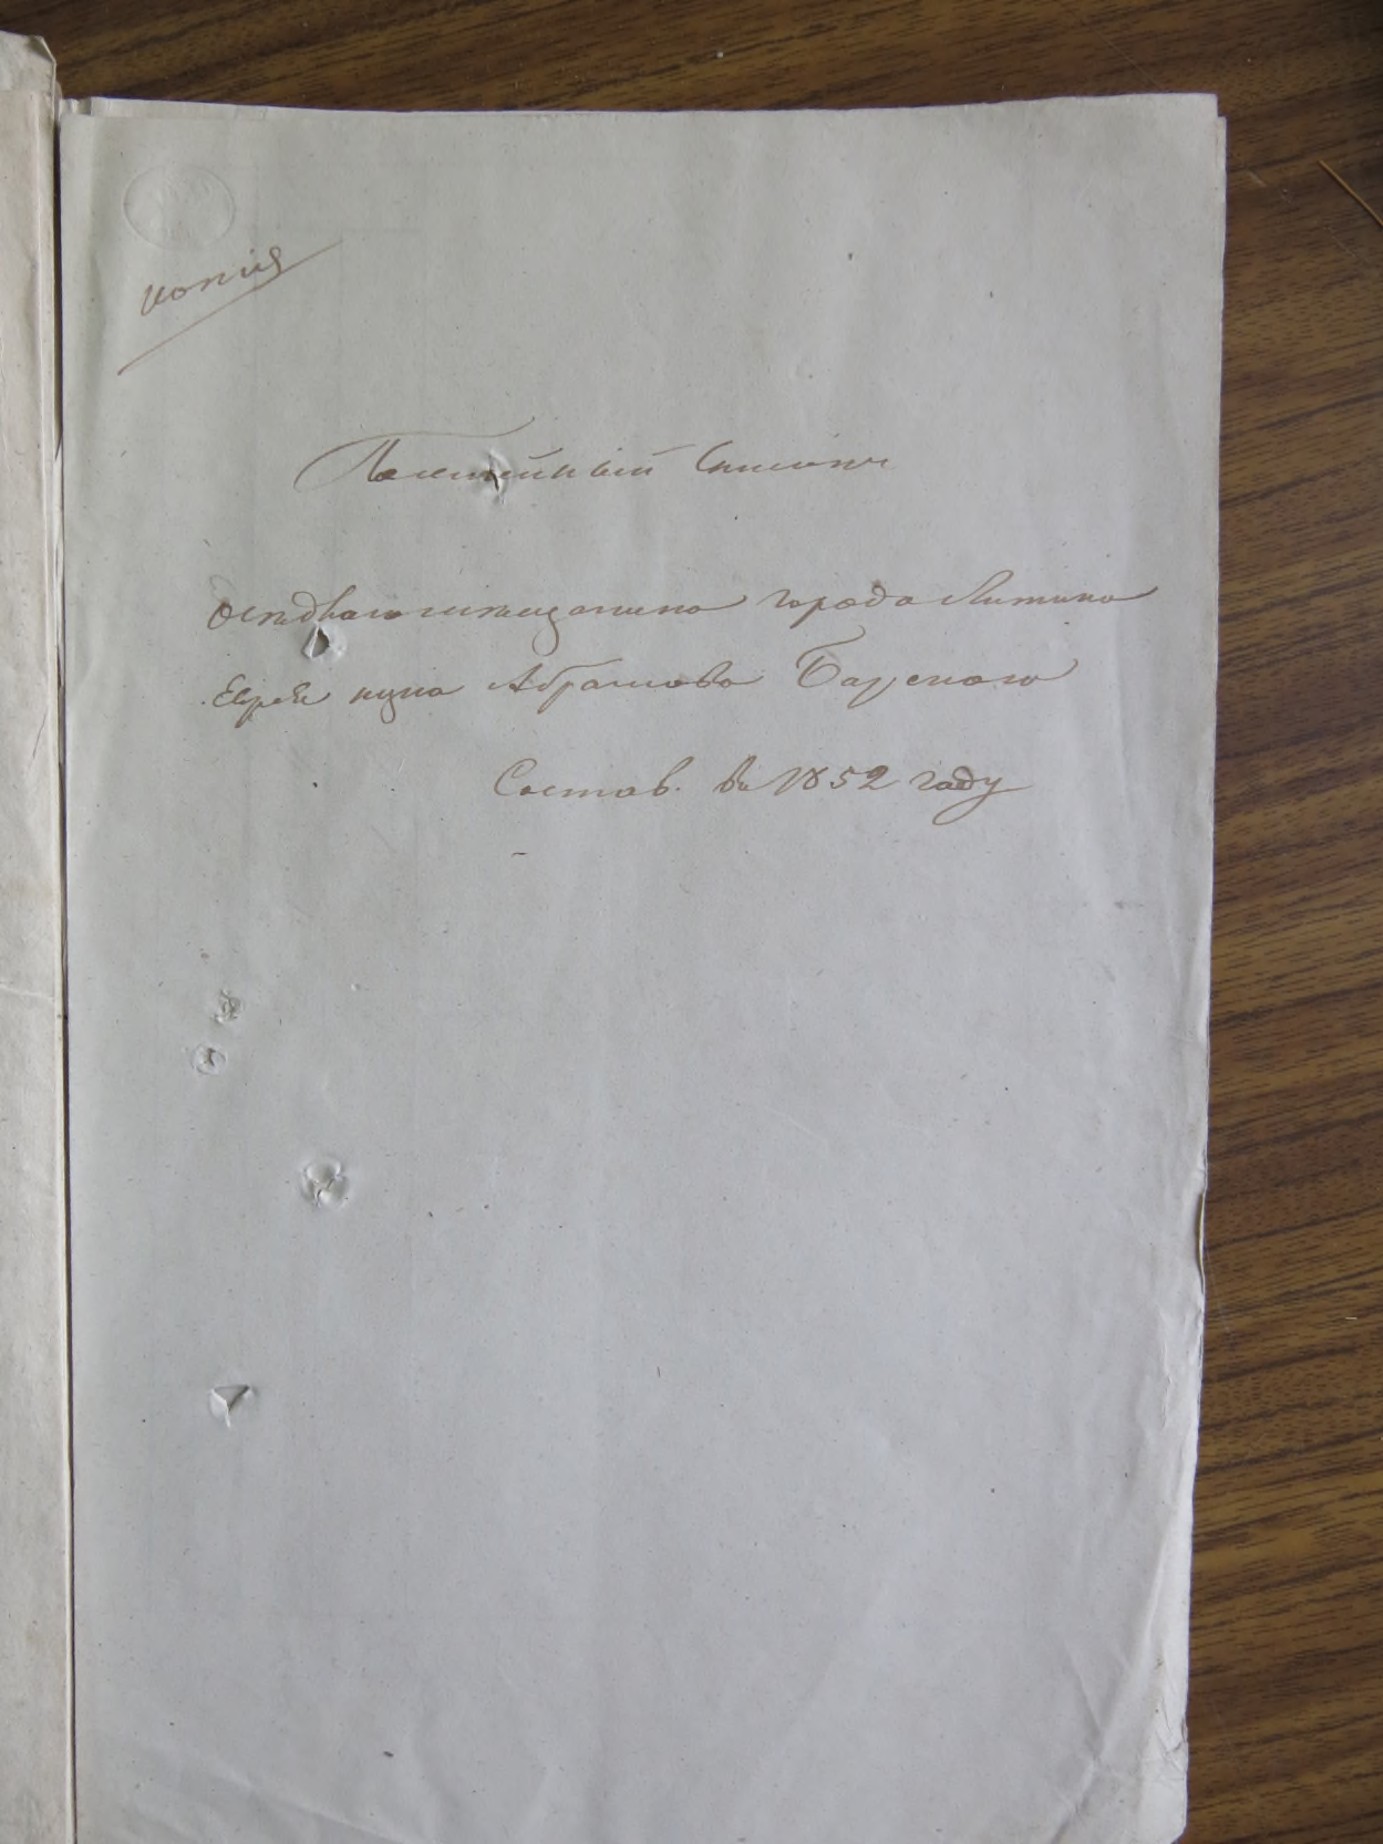 копія
Посемейный Списокъ
Оседлаго мещанина города Литина
Еврея нупа Абрамова Барскаго
Состав. въ 1852 году